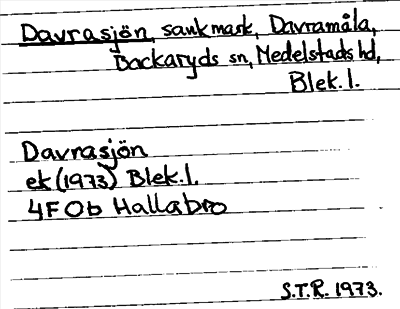 Davrasjön, sankmark, Davramåla,
Backaryds sn, Medelstads hd,
Blek. l.
Davrasjön
ek (1973) Blek. l.
4F 0b Hallabro
S.T.R. 1973.